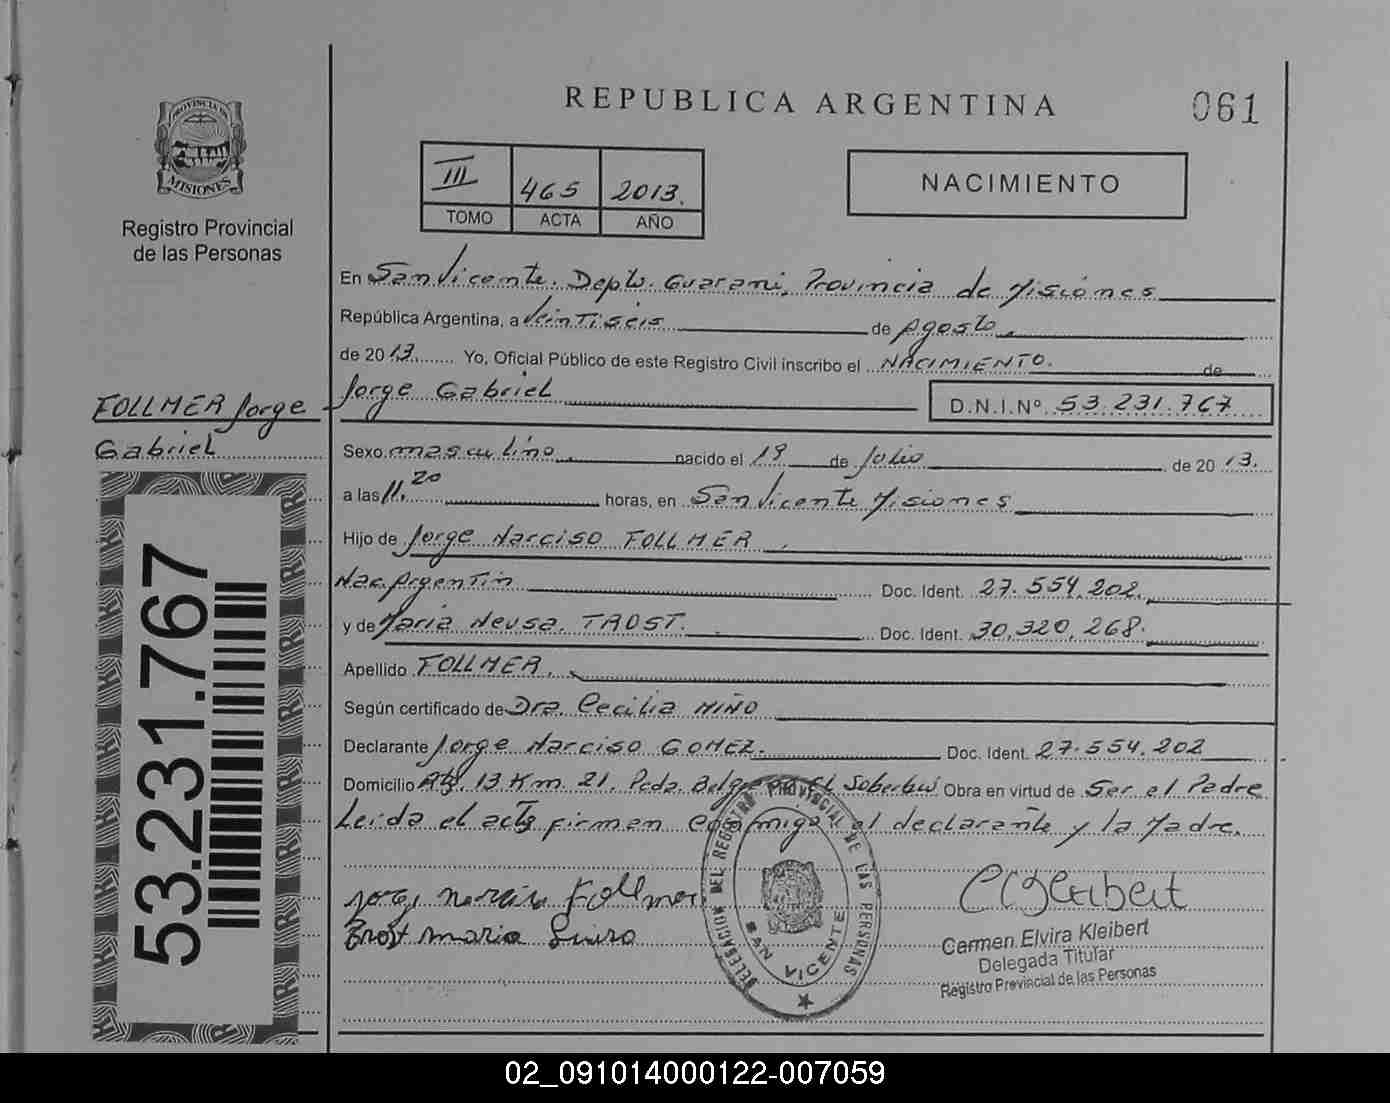 REPUBLICA ARGENTINA
061
PROVINCIA DE MISIONES
Registro Provincial
de las Personas
III 465 2013.
TOMO ACTA AÑO
NACIMIENTO
En San Vicente. Depto. Guarani, Provincia de Misiones
República Argentina, a Veintiseis de Agosto
de 2013 Yo, Oficial Público de este Registro Civil inscribo el NACIMIENTO. de
Jorge Gabriel D.N.I.Nº 53.231.767
FOLLMER Jorge
Gabriel
Sexo masculino nacido el 18 de Julio de 2013.
a las 11.20 horas, en San Vicente Misiones
Hijo de Jorge Narciso FOLLMER
Nac. Argentin Doc. Ident. 27.554.202.
y de Maria Neusa. TROST. Doc. Ident. 30.320.268.
Apellido FOLLMER.
Según certificado de Dra. Cecilia NIÑO
Declarante Jorge Narciso GOMEZ. Doc. Ident. 27.554.202
Domicilio 13 Km 21. Pcda. El Soberbio Obra en virtud de Ser el Padre
Leida el acta firman conmigo el declarante y la Madre.
Follmer
Trost Maria
DELEGACION DEL REGISTRO PROVINCIAL DE LAS PERSONAS
SAN VICENTE
Carmen Elvira Kleibert
Delegada Titular
Registro Provincial de las Personas
53.231.767
02_091014000122-007059